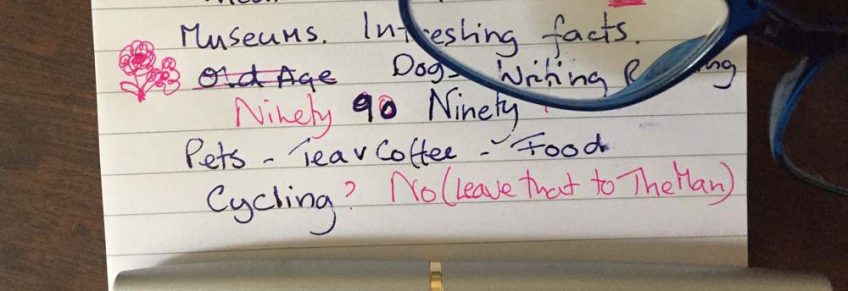 Museums. Interesting facts.
Old Age Dogs Writing
Ninety 90 Ninety
Pets - Tea v Coffee - Food
Cycling? No (Leave that to The Man)